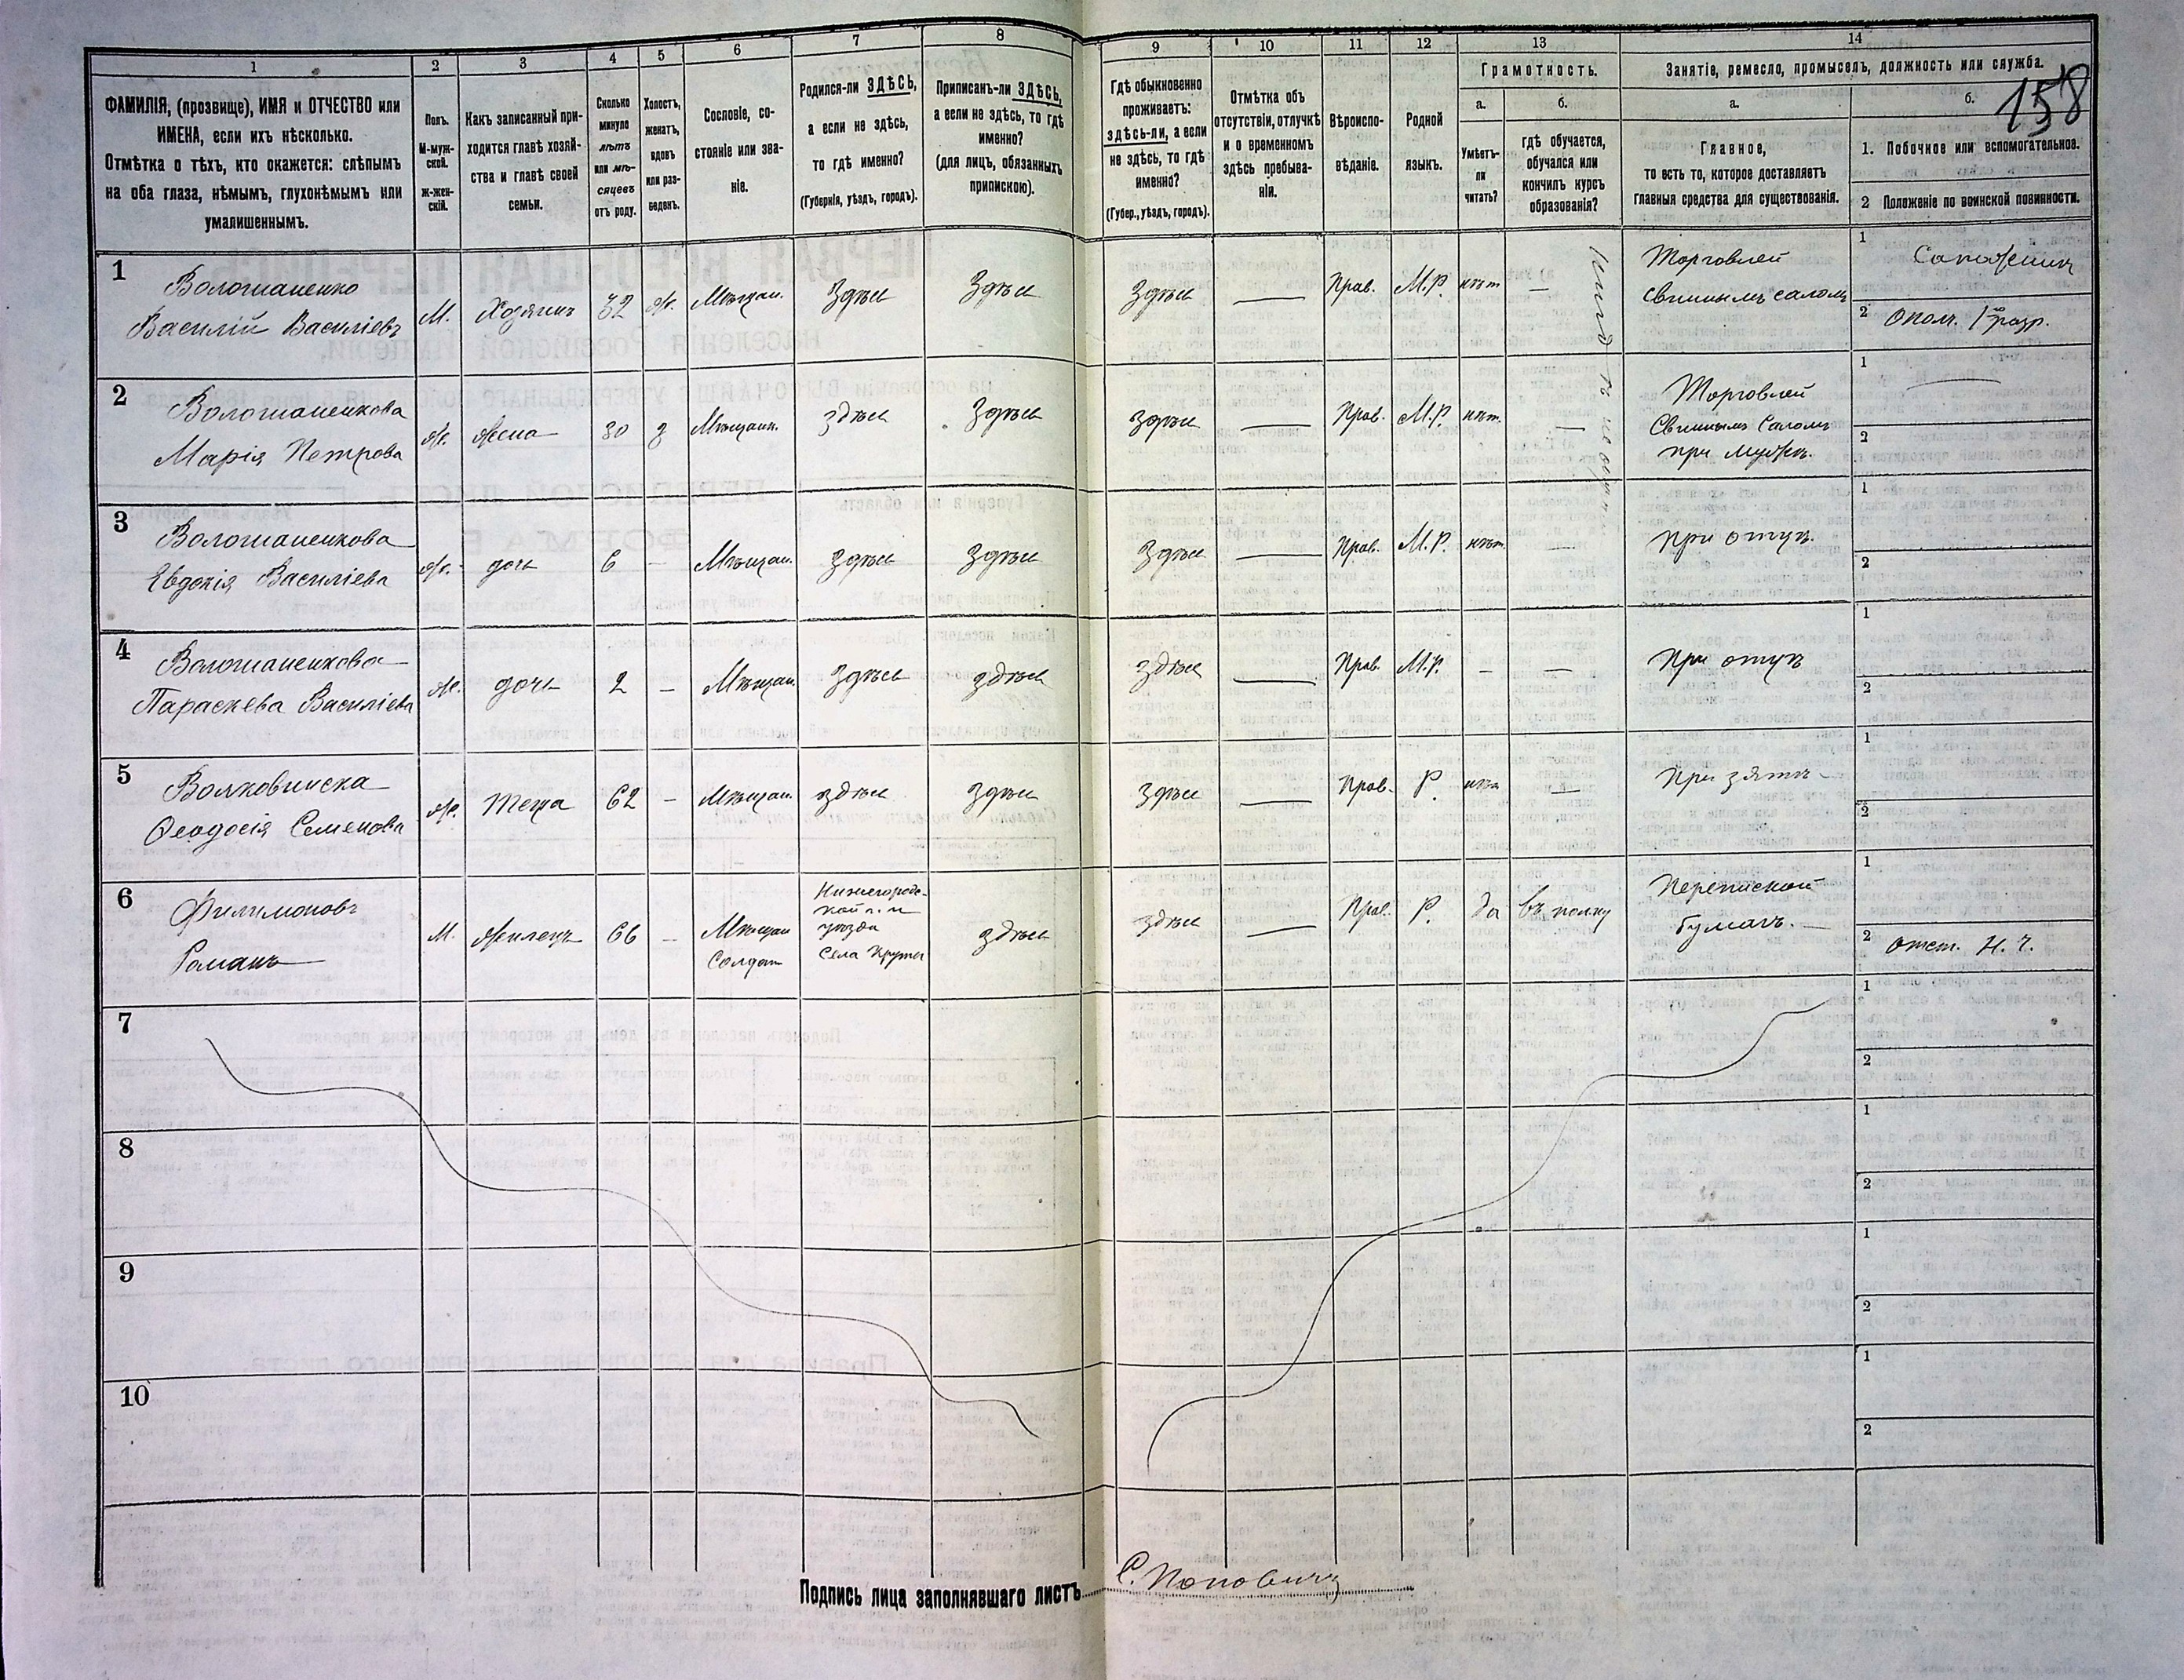 1 2 3 4 5 6 7 8 9 10 11 12 13 14
ФАМИЛІЯ, (прозвище), ИМЯ и ОТЧЕСТВО или
ИМЕНА, если ихъ нѣсколько.
Отмѣтка о тѣхъ, кто окажется: слѣпымъ
на оба глаза, нѣмымъ, глухонѣмымъ или
умалишеннымъ.
Полъ.
М-муж-
ской.
ж-жен-
скій.
Какъ записанный при-
ходится главѣ хозяй-
ства и главѣ своей
семьи.
Сколько
минуло
лѣтъ
или мѣ-
сяцевъ
отъ роду.
Холостъ,
женатъ,
вдовъ
или раз-
веденъ.
Сословіе, со-
стояніе или зва-
ніе.
Родился-ли ЗДѢСЬ,
а если не здѣсь,
то гдѣ именно?
(Губернія, уѣздъ, городъ).
Приписанъ-ли ЗДѢСЬ,
а если не здѣсь, то гдѣ
именно?
(для лицъ, обязанныхъ
припискою).
Гдѣ обыкновенно
проживаетъ:
здѣсь-ли, а если
не здѣсь, то гдѣ
именно?
(Губер., уѣздъ, городъ).
Отмѣтка объ
отсутствіи, отлучкѣ
и о временномъ
здѣсь пребыва-
ніи.
Вѣроиспо-
вѣданіе.
Родной
языкъ.
Грамотность.
а.
Умѣетъ-
ли
читать?
б.
гдѣ обучается,
обучался или
кончилъ курсъ
образованія?
Занятіе, ремесло, промыселъ, должность или служба.
а.
Главное,
то есть то, которое доставляетъ
главныя средства для существованія.
б.
158
1. Побочное или вспомогательное.
2 Положеніе по воинской повинности.
1 Волошаненко
Василій Васильевъ
М. Хозяинъ 32 Ж. Мѣщан. Здѣсь Здѣсь Здѣсь — Прав. М.Р. нѣтъ —
Торговлей
Свинымъ саломъ
1 Сапожник
2 Ополч. 1го разр.
2 Волошаненкова
Марія Петрова
Ж. Жена 30 з Мѣщанк. здѣсь Здѣсь Здѣсь — Прав. М.Р. нѣт. —
Торговлей
Свинымъ Саломъ
при мужѣ.
1 —
2
3 Волошаненкова
Евдокія Василіева
Ж. дочь 6 — Мѣщан. Здѣсь Здѣсь Здѣсь — Прав. М.Р. нѣт. —
При отцѣ.
1
2
4 Волошаненкова
Параскева Василіева
Ж. дочь 2 — Мѣщан. Здѣсь здѣсь здѣсь — Прав. М.Р. — —
При отцѣ
1
2
5 Волковинска
Ѳеодосія Семенова
Ж. Теща 62 — Мѣщан. здѣсь Здѣсь Здѣсь — Прав. Р. нѣтъ —
При зятѣ —
1
2
6 Филимоновъ
Романъ
М. Жилецъ 66 — Мѣщан
Солдат
Нижегородс-
кой г. и
уѣзда
Села
здѣсь здѣсь — Прав. Р. да въ полку
Перепиской
бумагъ. —
1
2 отст. Н. Ч.
7
1
2
8
1
2
9
1
2
10
1
2
Подпись лица заполнявшаго листъ С. Поповичъ